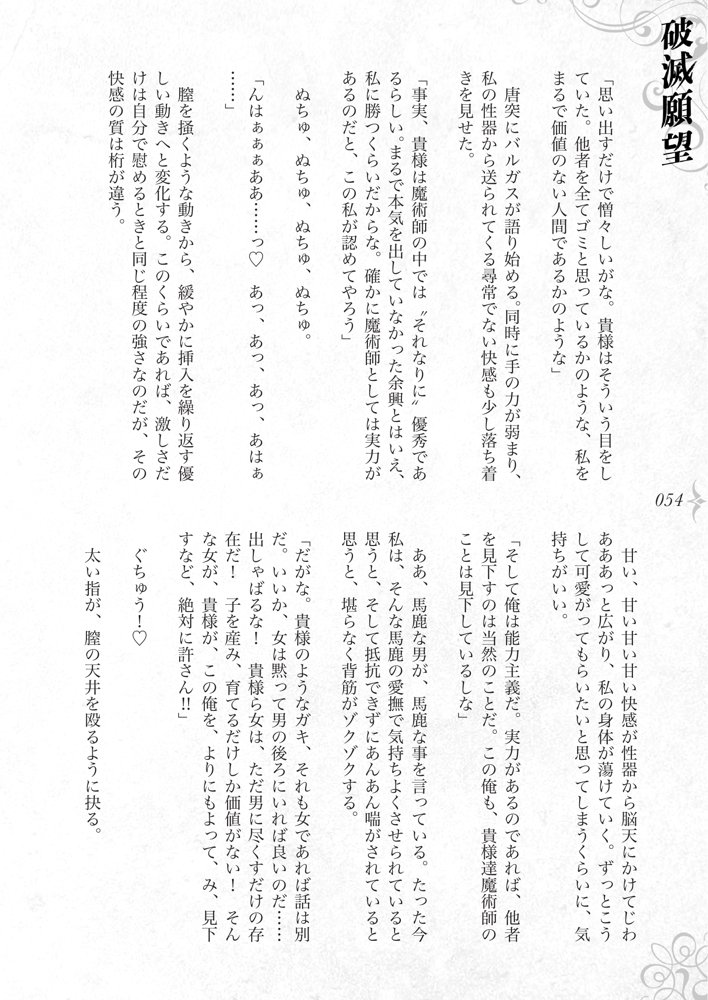 破滅願望
「思い出すだけで憎々しいがな。貴様はそういう目をし
ていた。他者を全てゴミと思っているかのような、私を
まるで価値のない人間であるかのような」
唐突にバルガスが語り始める。同時に手の力が弱まり、
私の性器から送られてくる尋常でない快感も少し落ち着
きを見せた。
「事実、貴様は魔術師の中では〝それなりに〟優秀であ
るらしい。まるで本気を出していなかった余興とはいえ、
私に勝つくらいだからな。確かに魔術師としては実力が
あるのだと、この私が認めてやろう」
ぬちゅ、ぬちゅ、ぬちゅ、ぬちゅ。
「んはぁぁぁああ……っ♡　あっ、あっ、あっ、あはぁ
……」
膣を掻くような動きから、緩やかに挿入を繰り返す優
しい動きへと変化する。このくらいであれば、激しさだ
けは自分で慰めるときと同じ程度の強さなのだが、その
快感の質は桁が違う。
甘い、甘い甘い甘い快感が性器から脳天にかけてじわ
あああっと広がり、私の身体が蕩けていく。ずっとこう
して可愛がってもらいたいと思ってしまうくらいに、気
持ちがいい。
「そして俺は能力主義だ。実力があるのであれば、他者
を見下すのは当然のことだ。この俺も、貴様達魔術師の
ことは見下しているしな」
ああ、馬鹿な男が、馬鹿な事を言っている。たった今
私は、そんな馬鹿の愛撫で気持ちよくさせられていると
思うと、そして抵抗できずにあんあん喘がされていると
思うと、堪らなく背筋がゾクゾクする。
「だがな。貴様のようなガキ、それも女であれば話は別
だ。いいか、女は黙って男の後ろにいれば良いのだ……
出しゃばるな！　貴様ら女は、ただ男に尽くすだけの存
在だ！　子を産み、育てるだけしか価値がない！　そん
な女が、貴様が、この俺を、よりにもよって、み、見下
すなど、絶対に許さん!!」
ぐちゅう！♡
太い指が、膣の天井を殴るように抉る。
054